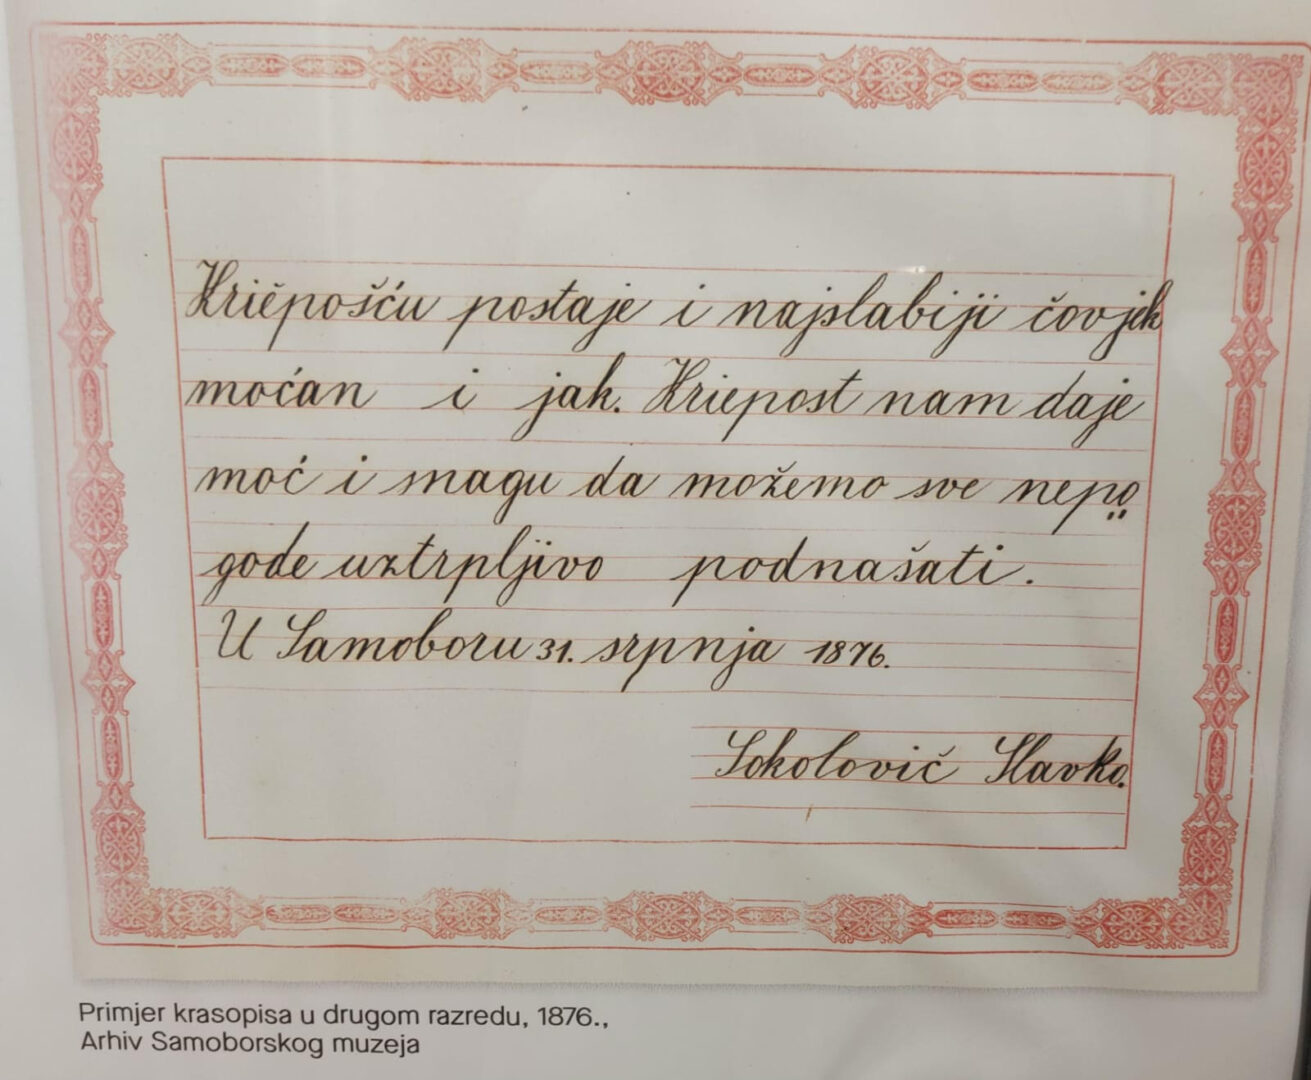 Kriěpošću postaje i najslabiji čovjek
moćan i jak. Kriepost nam daje
moć i snagu da možemo sve nepo
gode uztrpljivo podnašati.
U Samoboru 31. srpnja 1876.
Sokolović Slavko.
Primjer krasopisa u drugom razredu, 1876.,
Arhiv Samoborskog muzeja